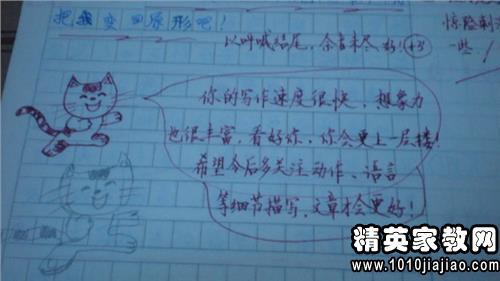 把我变回原形吧！
以呐喊结尾，余音未尽，好！+3
惊险刺
一些！
你的写作速度很快，想象力
也很丰富，看好你，你会更上一层楼！
希望今后多关注动作、语言
等细节描写，文章才会更好！
精英家教网
www.1010jiajiao.com